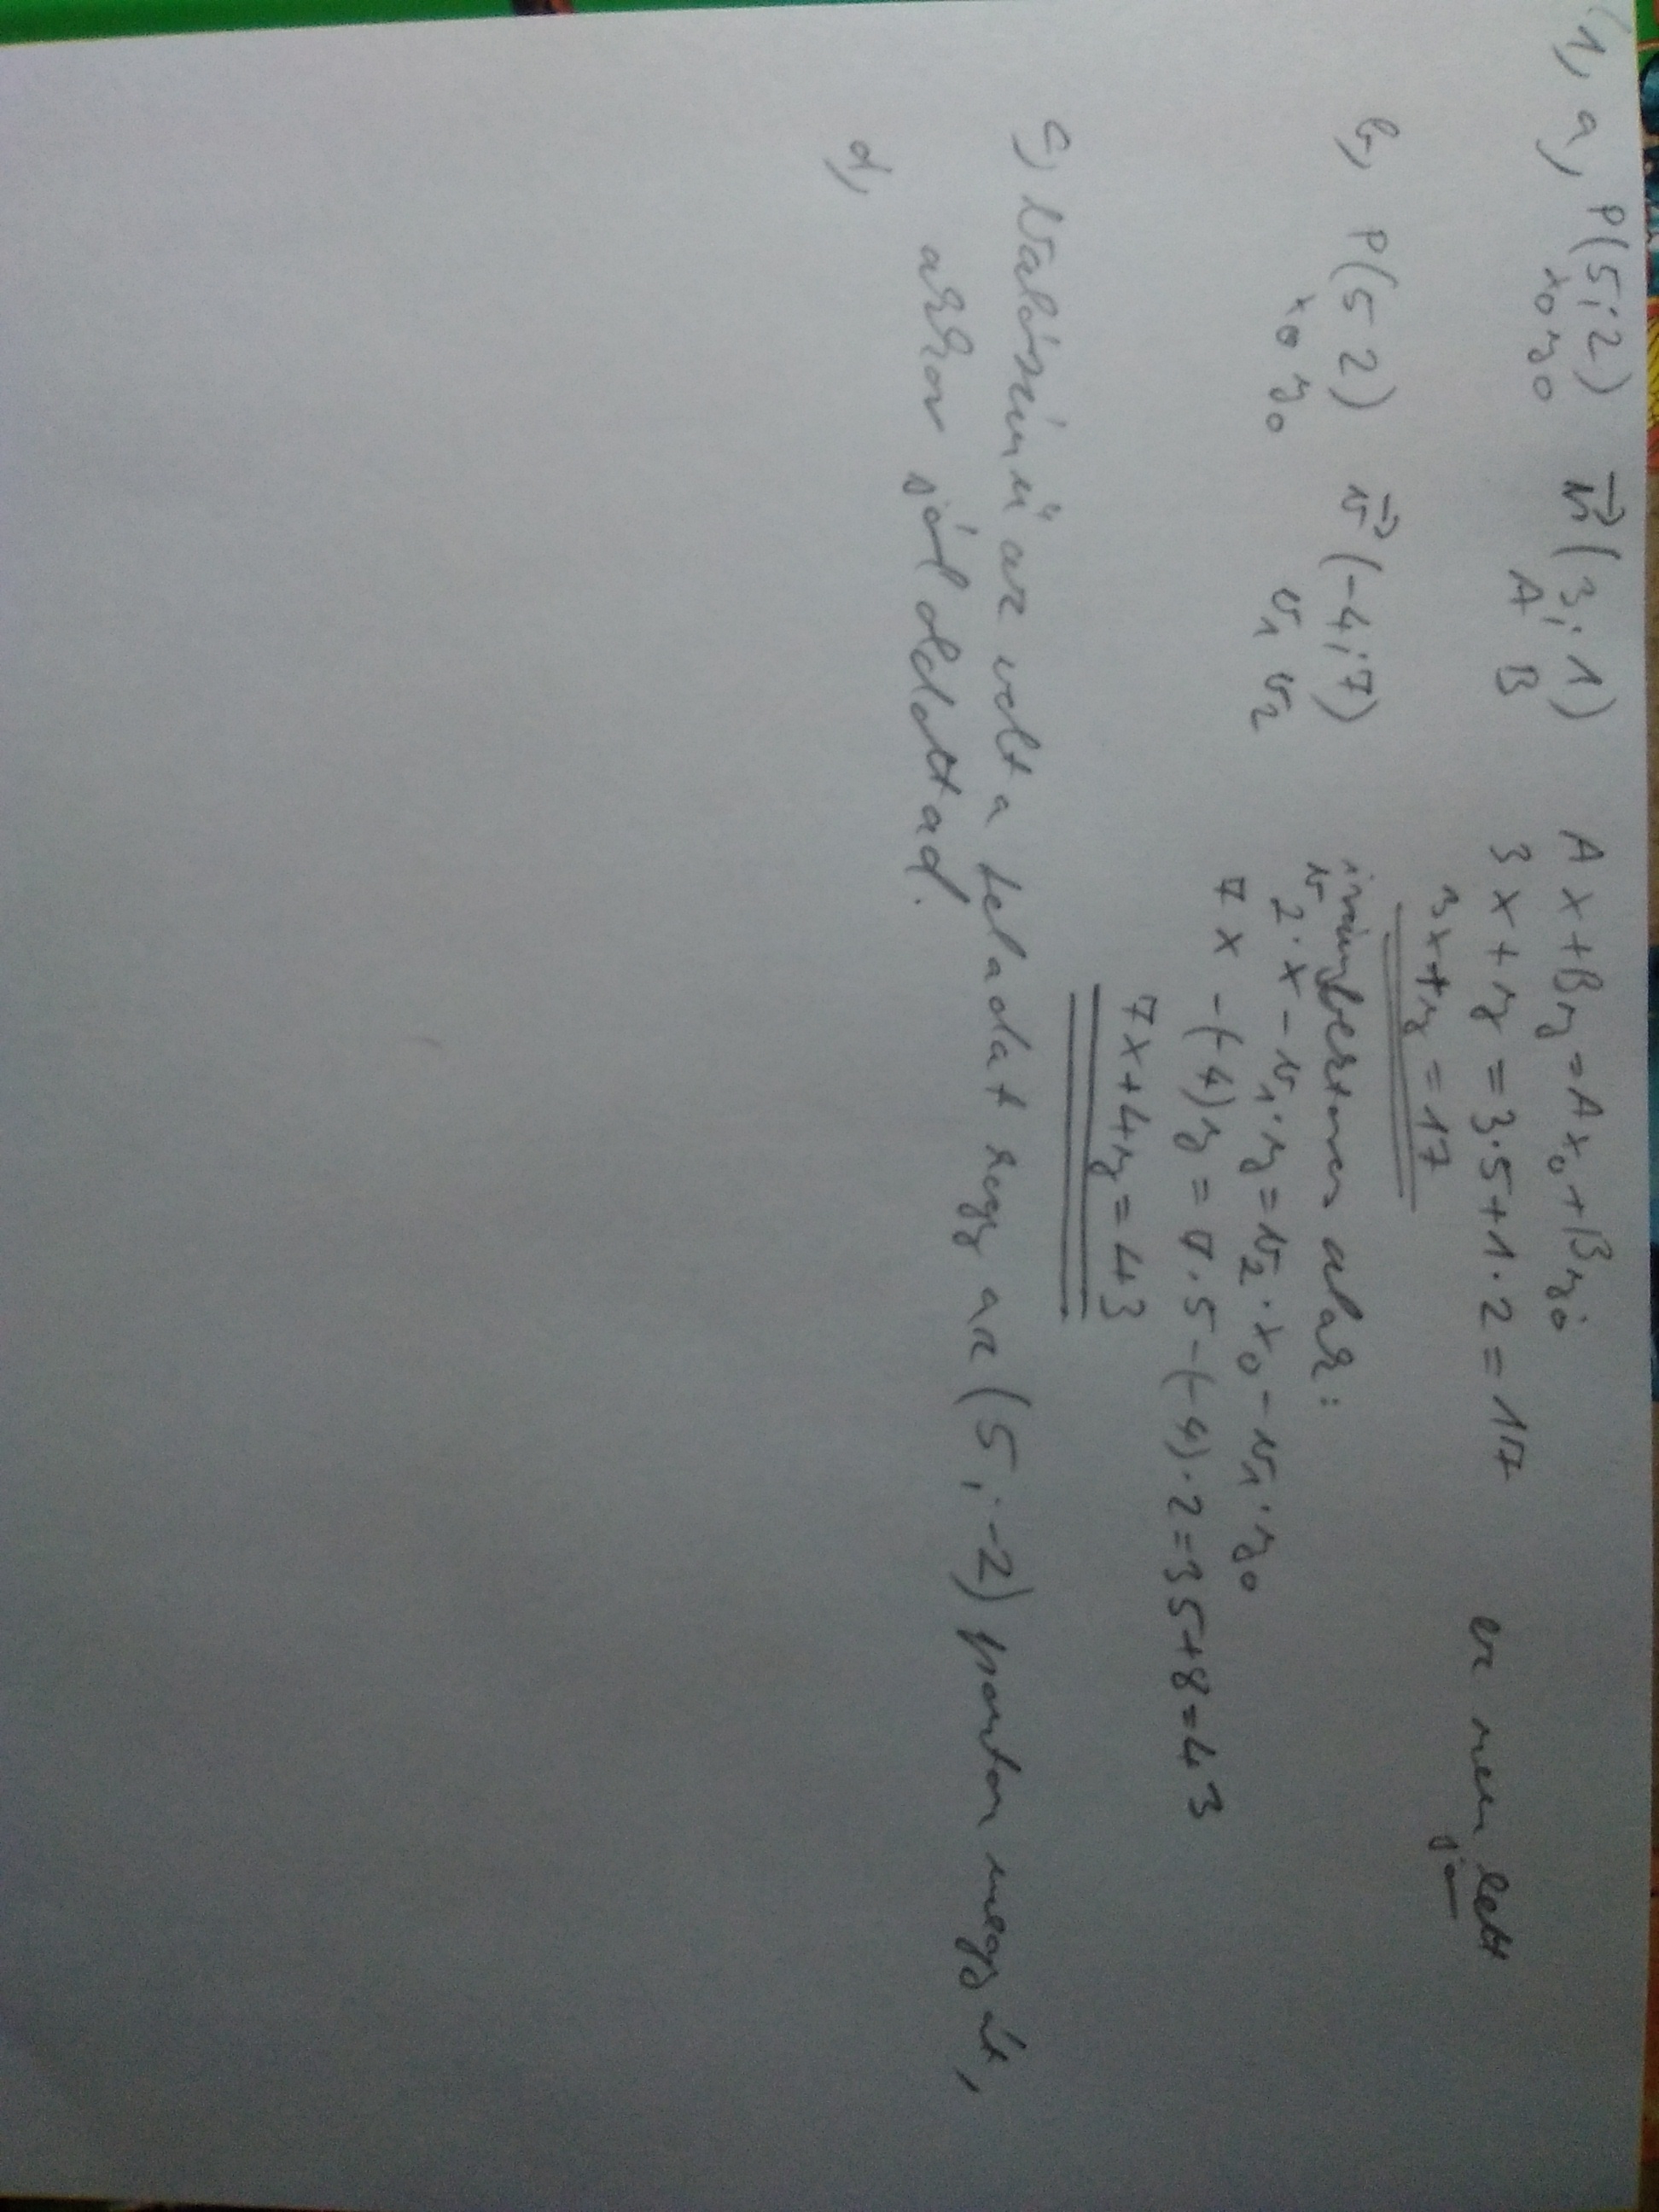 1, a, P(5;2) n⃗(3;1) Ax+By=Ax₀+By₀
x₀ y₀ A B 3x+y=3·5+1·2=17 ez nem lett jó
3x+y=17
b, P(5 2) v⃗(-4;7) irányvektoros alak:
x₀ y₀ v₁ v₂ v₂·x-v₁·y=v₂·x₀-v₁·y₀
7x-(-4)y=7·5-(-4)·2=35+8=43
7x+4y=43
c, Valószínű az volt a feladat hogy az (5;-2) ponton megy át,
akkor jól oldottad.
d,